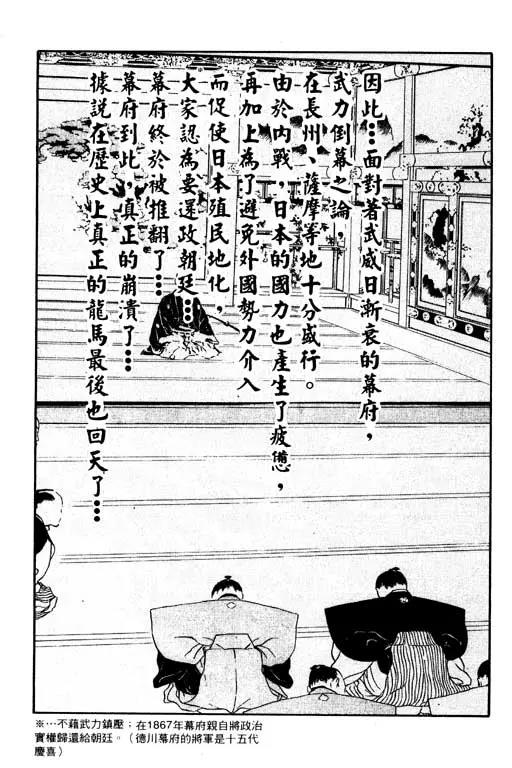 因此…面對着武威日漸衰的幕府，
武力倒幕之論，
在長州、薩摩等地十分盛行。
由於內戰，日本的國力也產生了疲憊，
再加上為了避免外國勢力介入
而促使日本殖民地化，
大家認為要還政朝廷…
幕府終於被推翻了…
幕府到此，真正的崩潰了…
據說在歷史上真正的龍馬最後也回天了…
※…不藉武力鎮壓；在1867年幕府親自將政治
實權歸還給朝廷。（德川幕府的將軍是十五代
慶喜）